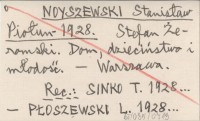 NOYSZEWSKI Stanisław
Piołun 1928.
Stefan Że-
romski. Dom, dzieciństwo i
młodość. — Warszawa.
Rec.: SINKO T. 1928...
— PŁOSZEWSKI L. 1928...